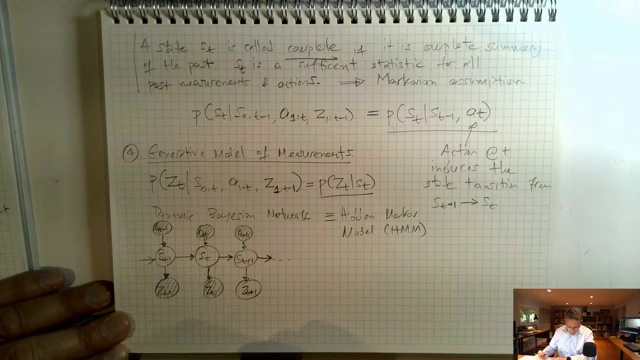 A state St is called complete if it is complete summary
of the past St is a sufficent statistic for all
past measurements & actions. ⟹ Markovian assumption
p(St | S0:t-1, a1:t, z1:t-1) = p(St | St-1, at)
④ Generative Model of Measurements
Action @ t
induces the
state transition from
St-1 → St
p(Zt | S0:t, a1:t, Z1:t-1) = p(Zt | St)
Dynamic Bayesian Network ≡ Hidden Markov
Model (HMM)
at-1 at at+1
St-1 St St+1 ...
Zt-1 Zt Zt+1